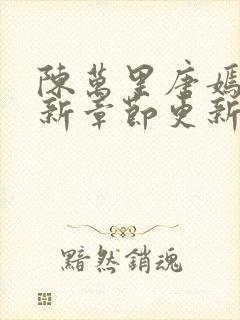 陳萬里唐嫣
新章節更新
黯然銷魂